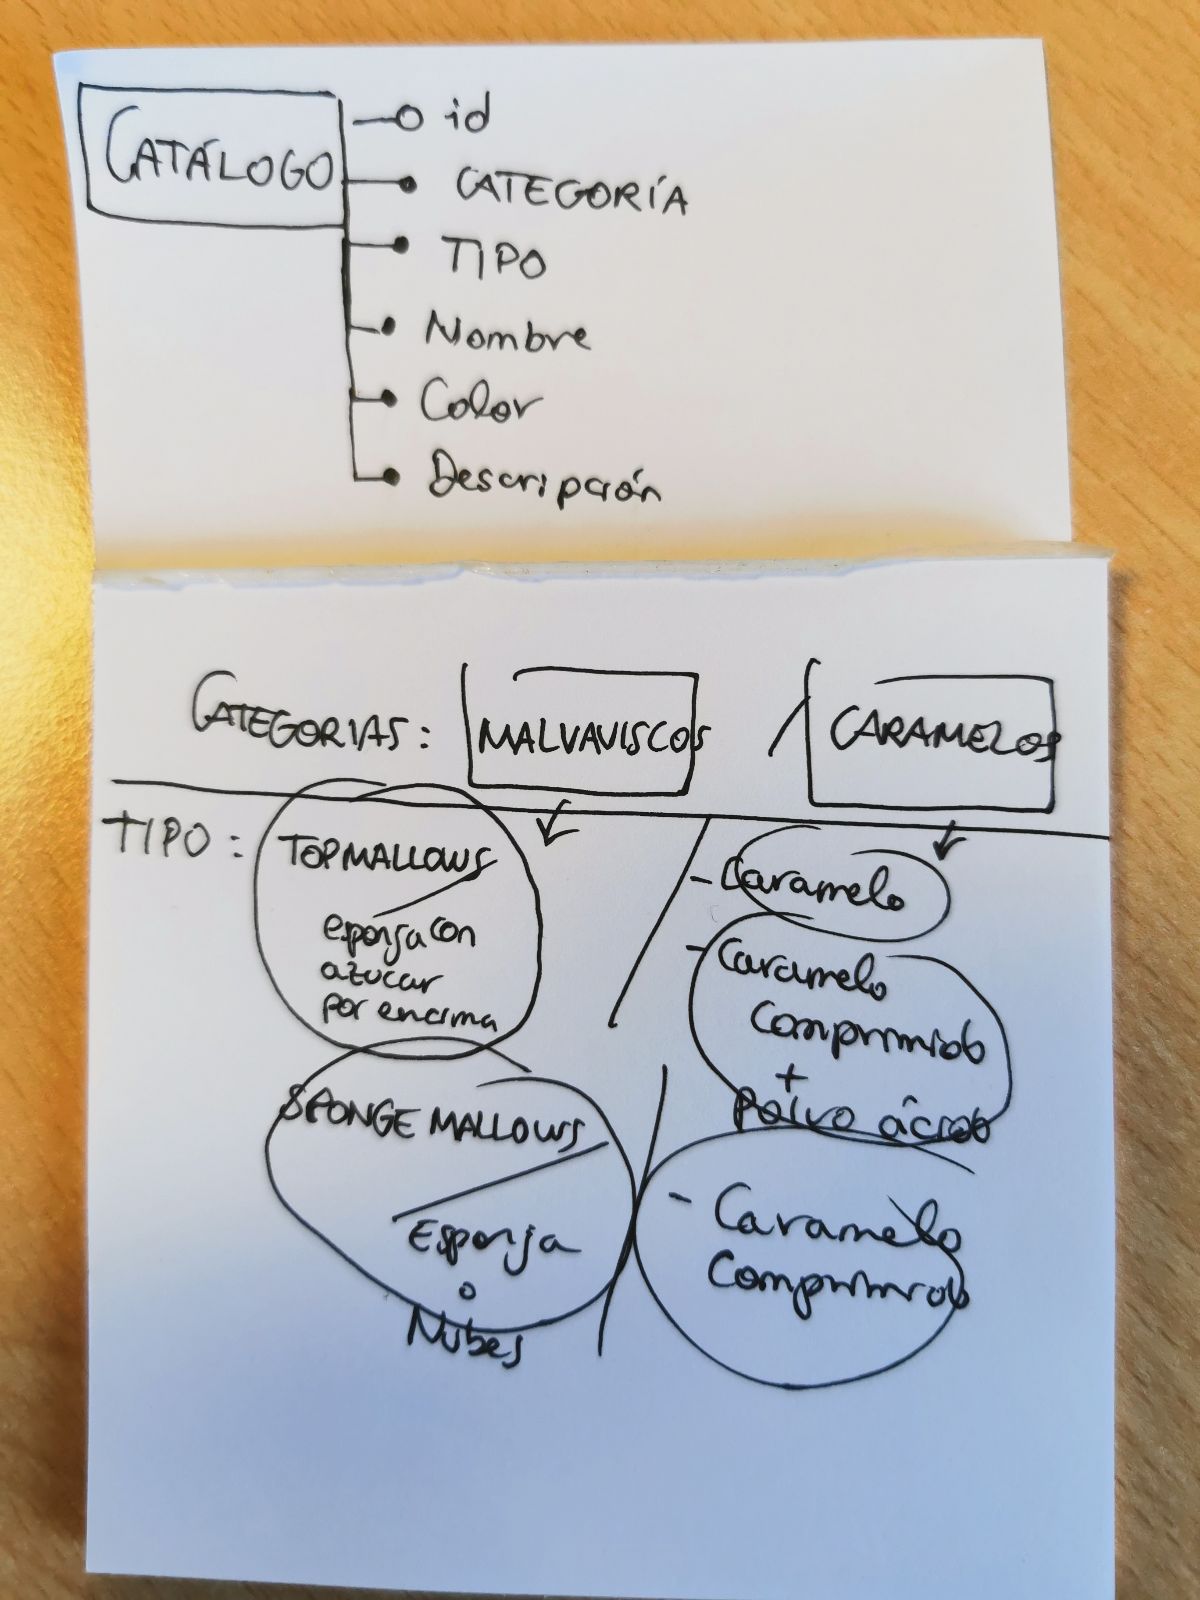 CATÁLOGO
id
CATEGORÍA
TIPO
Nombre
Color
Descripción
CATEGORIAS: MALVAVISCOS / CARAMELOS
TIPO:
TOPMALLOWS
esponja con
azucar
por encima
SPONGE MALLOWS
Esponja
o
Nubes
- Caramelo
- Caramelo
Comprimido
+
Polvo ácido
- Caramelo
Comprimido